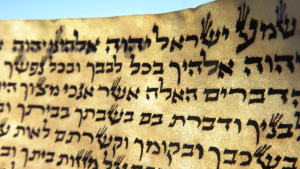 שמע ישראל יהוה אלהינו יהוה
יהוה אלהיך בכל לבבך ובכל נפשך
הדברים האלה אשר אנכי מצוך
לבניך ודברת בם בשבתך בביתך
בשכבך ובקומך וקשרתם לאות
מזזות ביתך